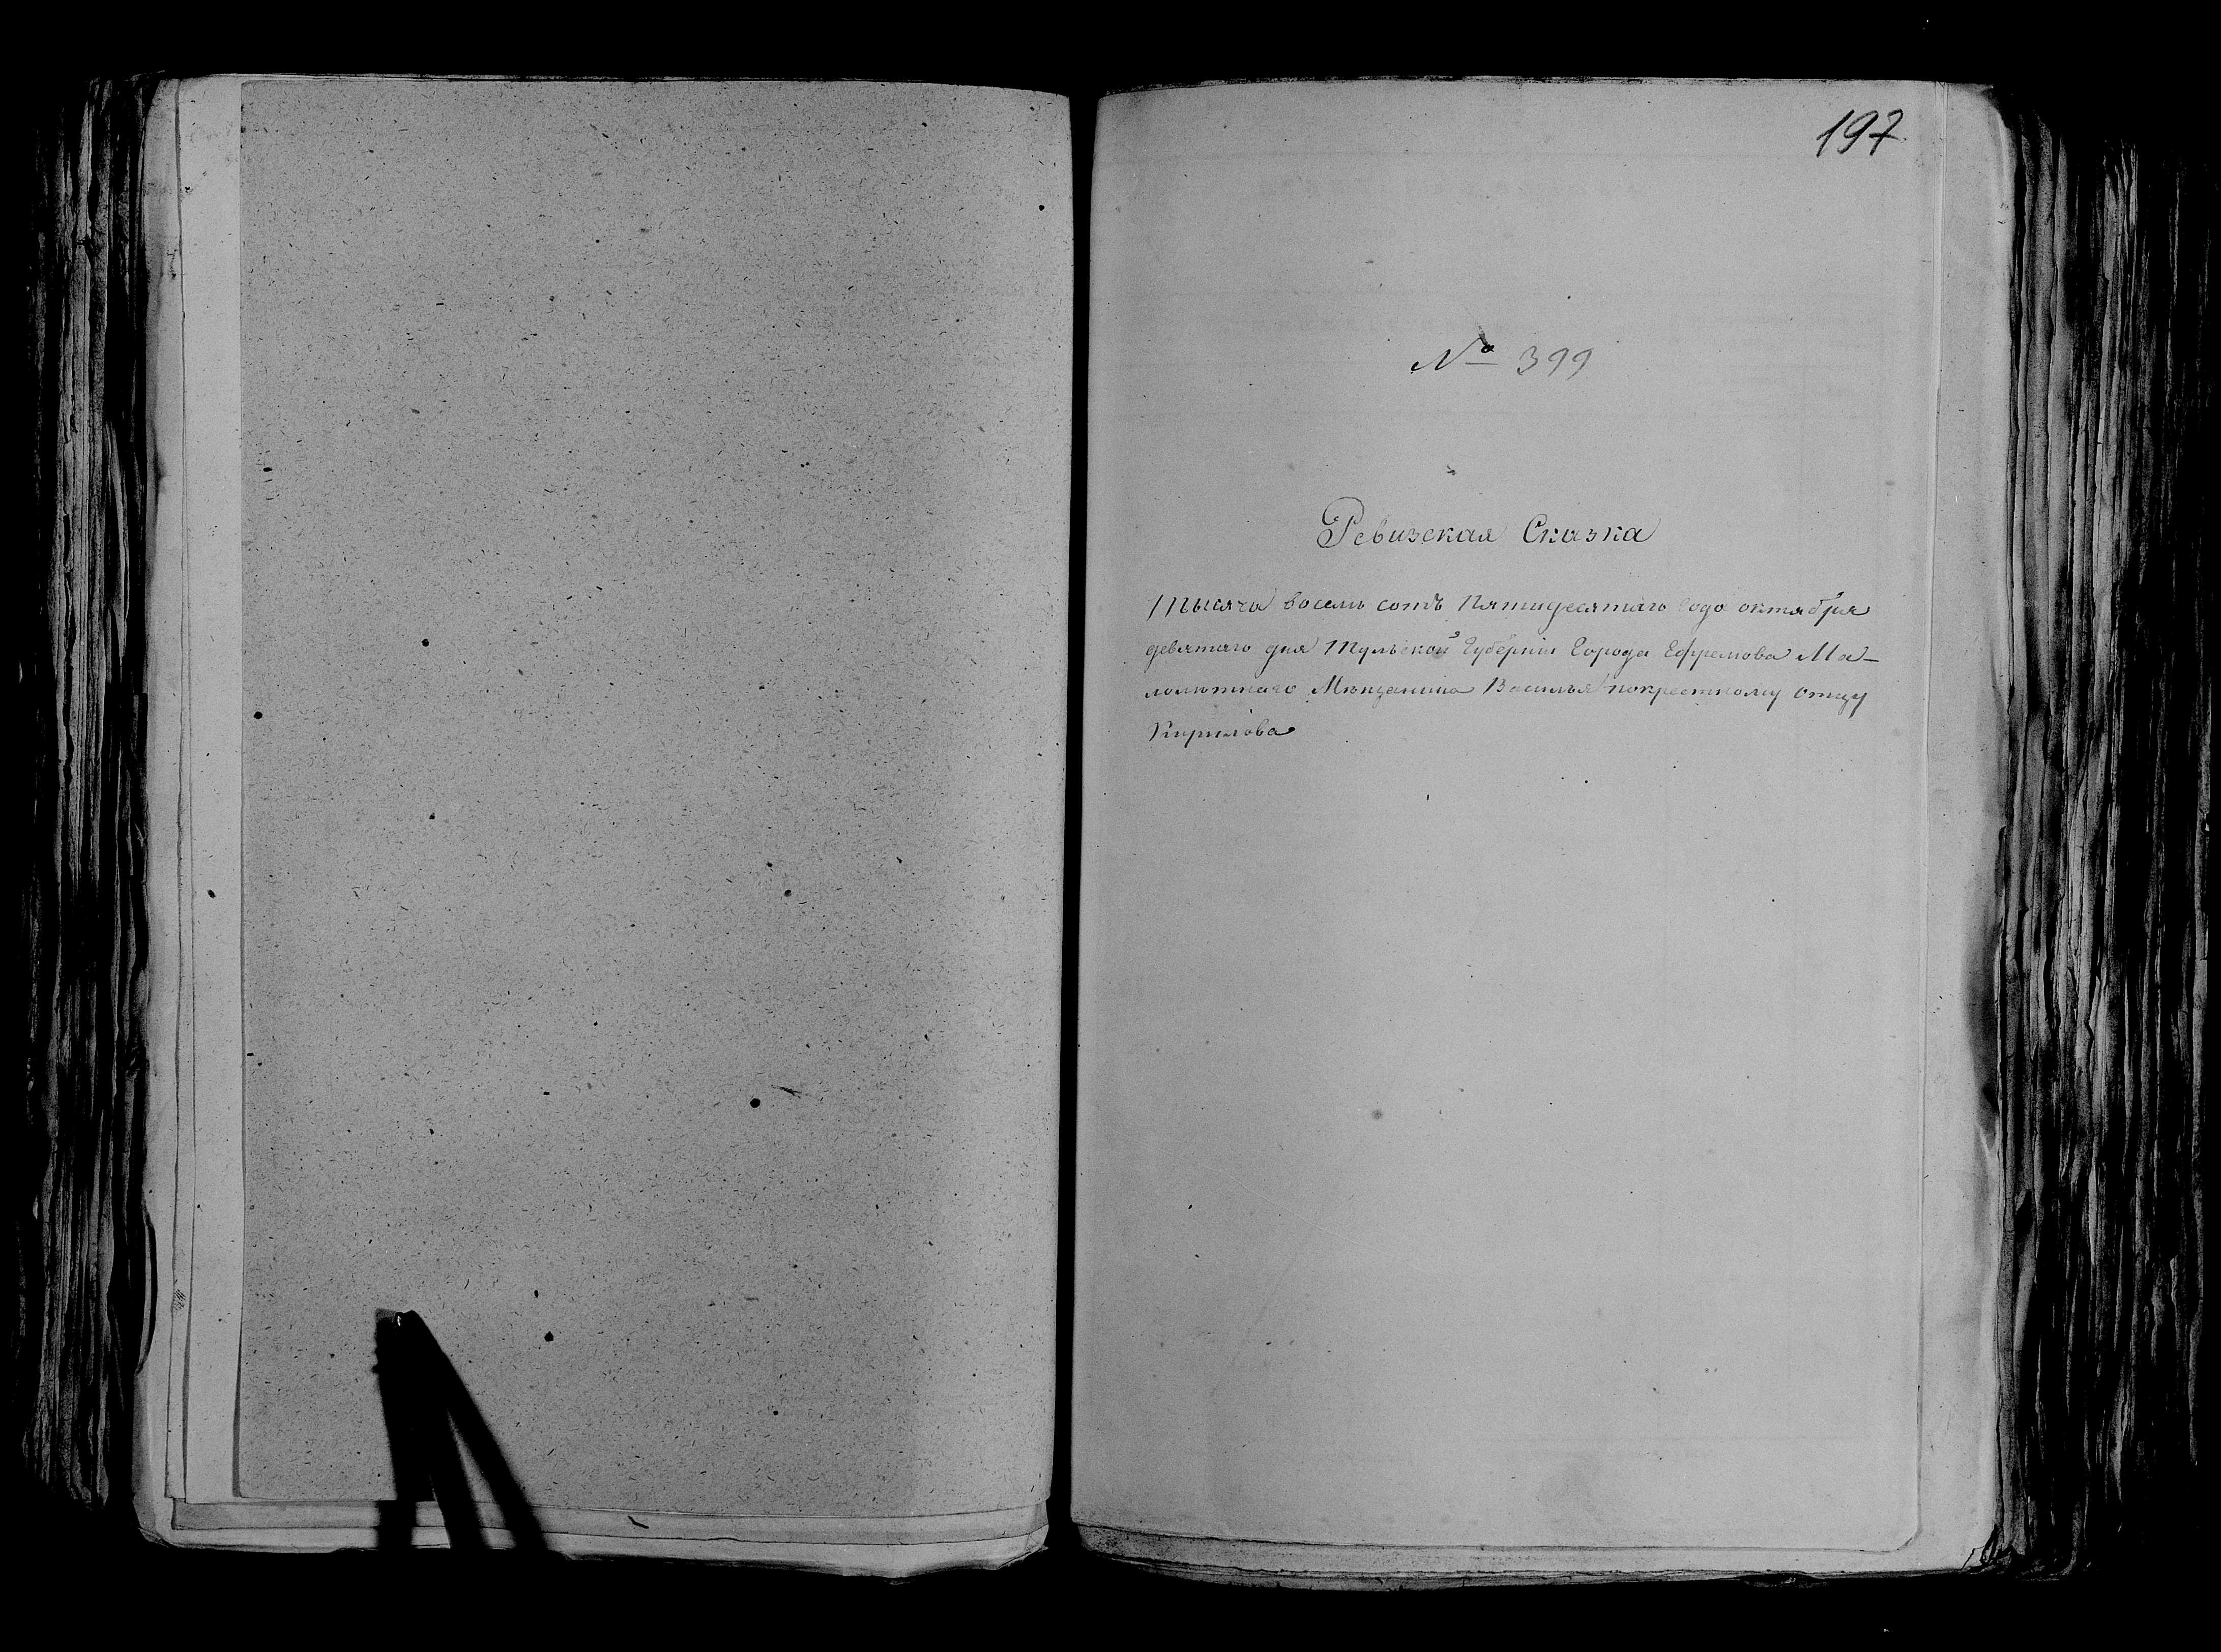 197
№ 399
Ревизская Сказка
Тысяча восемь сотъ Пятидесятаго года октября
девятаго дня Тульской Губерніи Города Ефремова Ма-
лолѣтнаго Мѣщанина Василья покрестному отцу
Кирилова